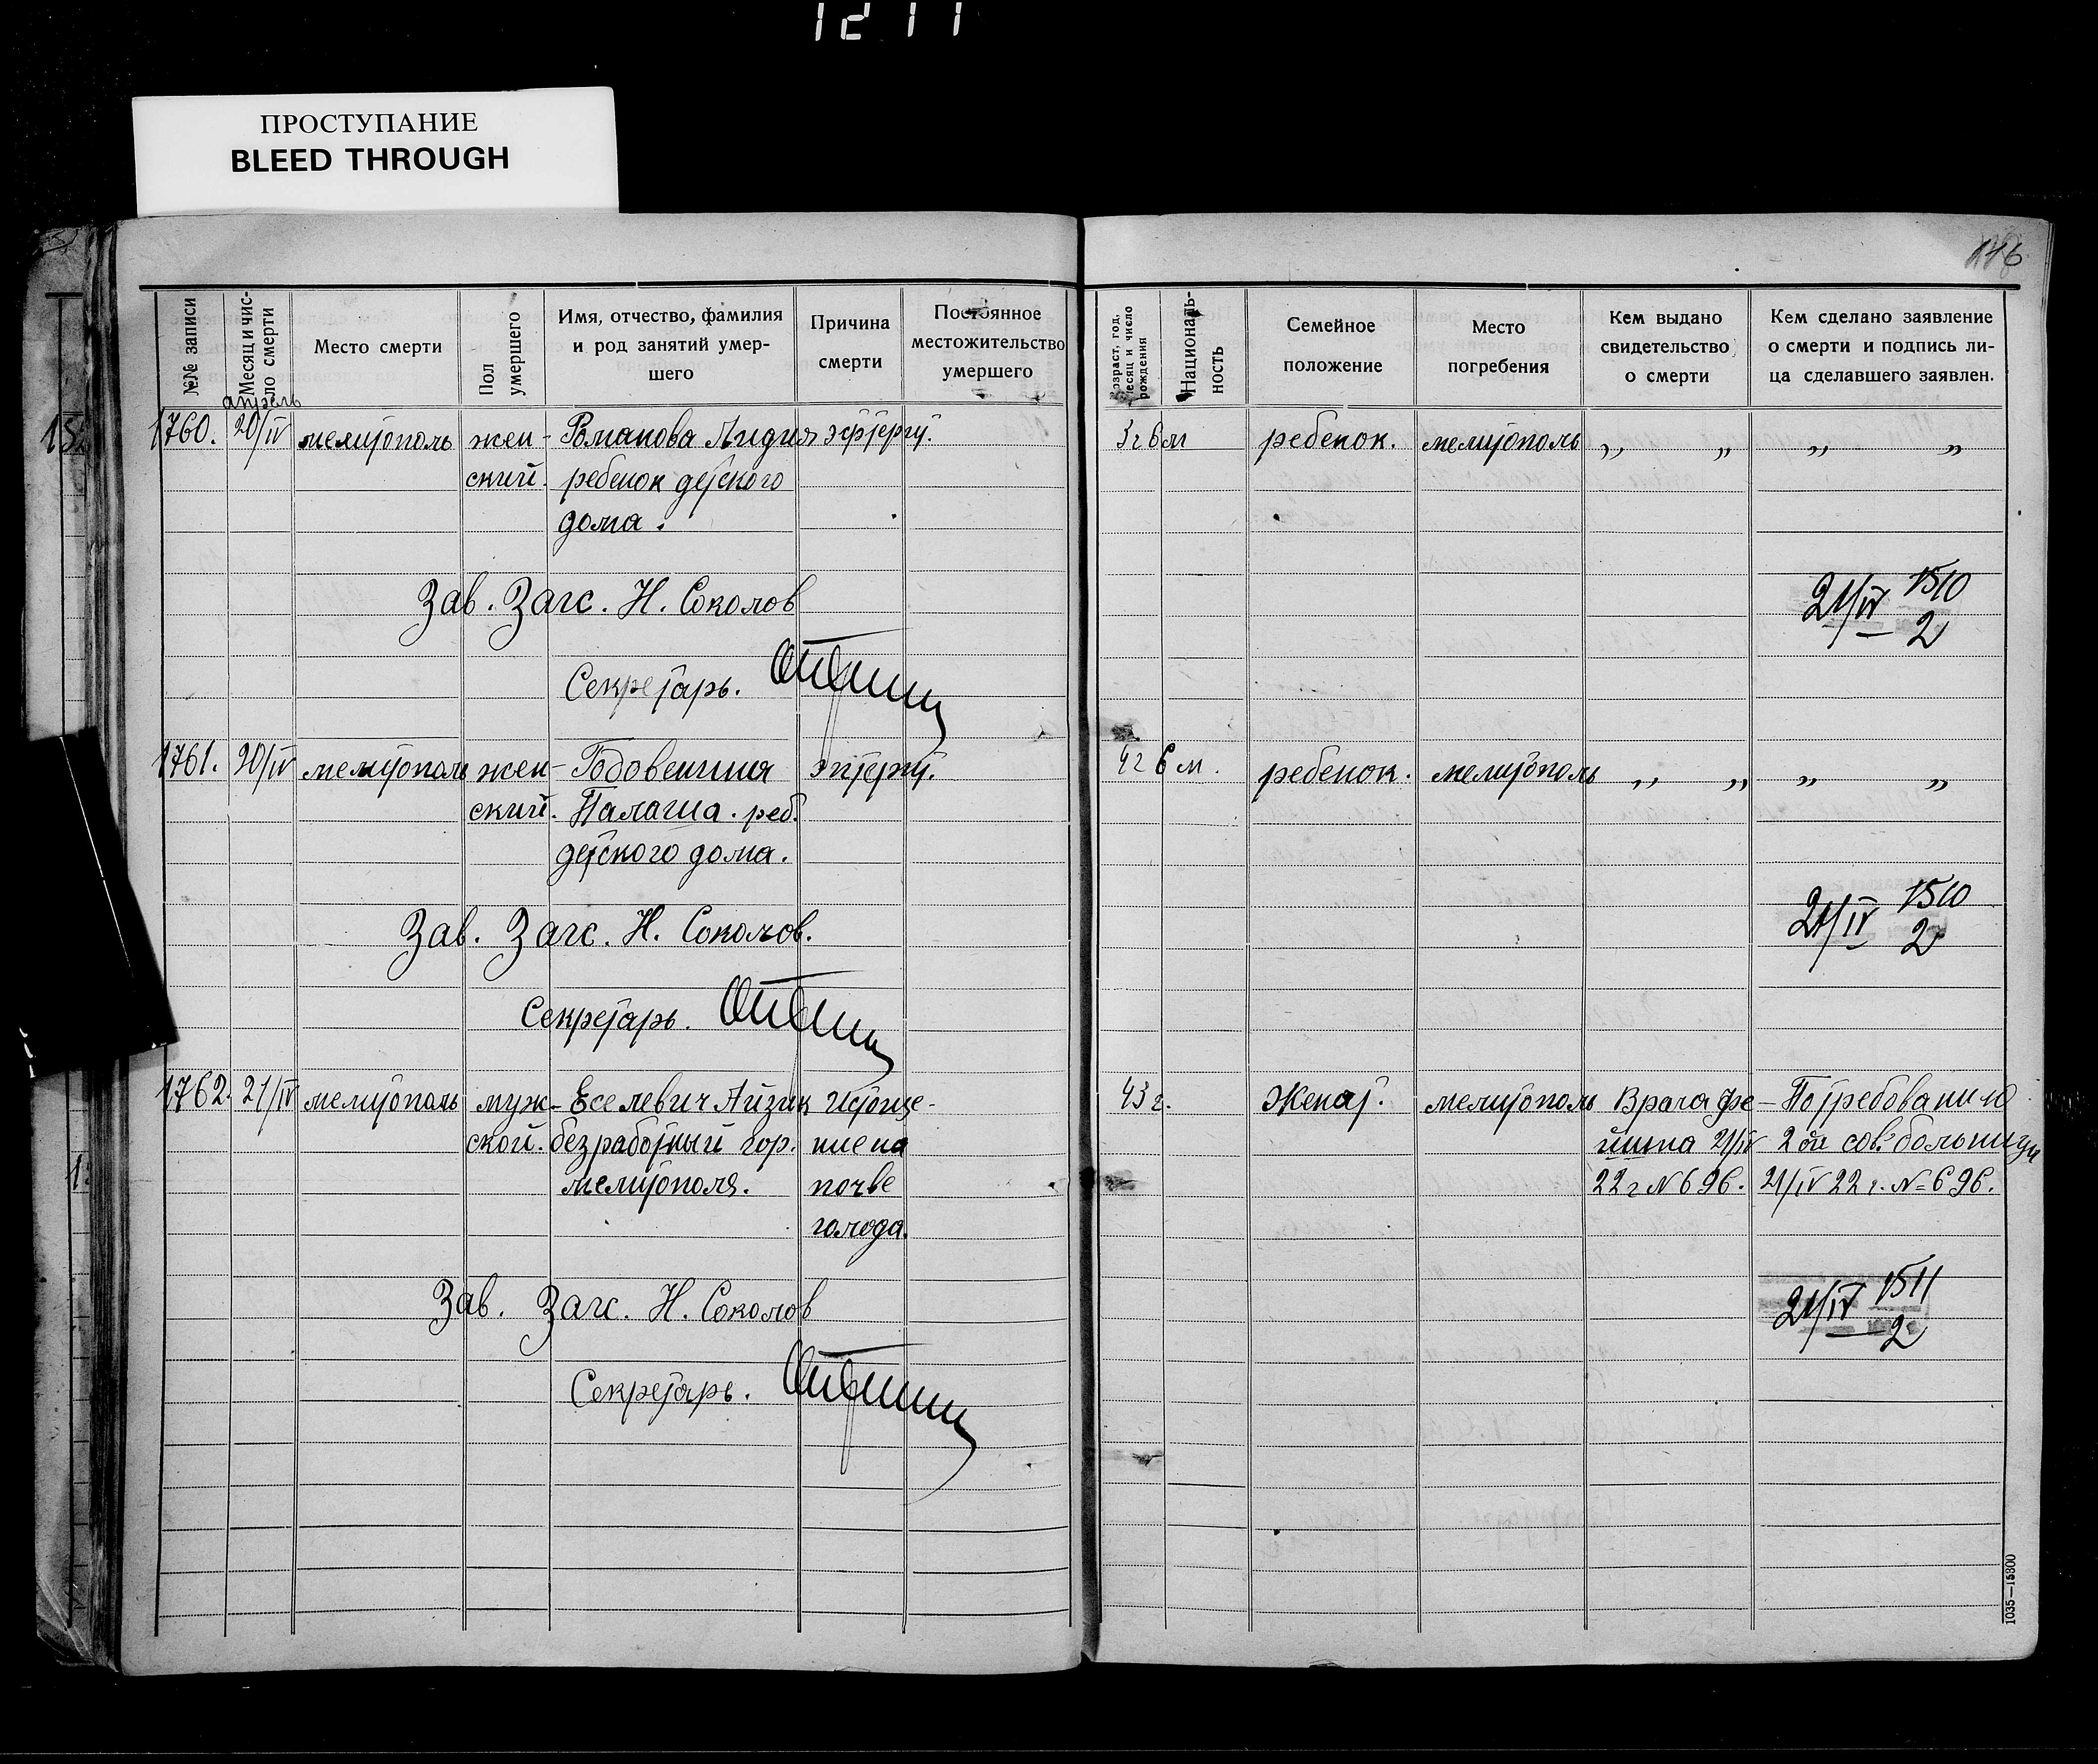 1211
ПРОСТУПАНИЕ
BLEED THROUGH
176
№№ записи
Месяц и чис-
ло смерти
Место смерти
Пол
умершего
Имя, отчество, фамилия
и род занятий умер-
шего
Причина
смерти
Постоянное
местожительство
умершего
Возраст, год,
месяц и число
рождения
Националь-
ность
Семейное
положение
Место
погребения
Кем выдано
свидетельство
о смерти
Кем сделано заявление
о смерти и подпись ли-
ца сделавшего заявлен.
апрель
1760. 20/IV мелитополь жен- Романова Лидия 3 г 6 м ребенок. мелитополь ,, ,, ,, ,,
ский. ребенок детского
дома.
Зав. Загс. Н. Соколов
21/IV 1510
2
Секретарь.
1761. 20/IV мелитополь жен- энтерит. 4 г 6 м. ребенок. мелитополь ,, ,, ,, ,,
ский. Палаша. реб.
детского дома.
Зав. Загс. Н. Соколов.
21/IV 1510
2
Секретарь.
1762. 21/IV мелитополь муж- Еселевич Айзик Истоще- 43 г. Женат. мелитополь Врача Фе- По требованию
ской. безработный гор. ние на йгина 21/IV 2ой сов. больницы
мелитополя. почве 22 г N 696. 21/IV 22 г. N= 696.
голода.
Зав. Загс. Н. Соколов
21/IV 1511
2
Секретарь.
1035—15800